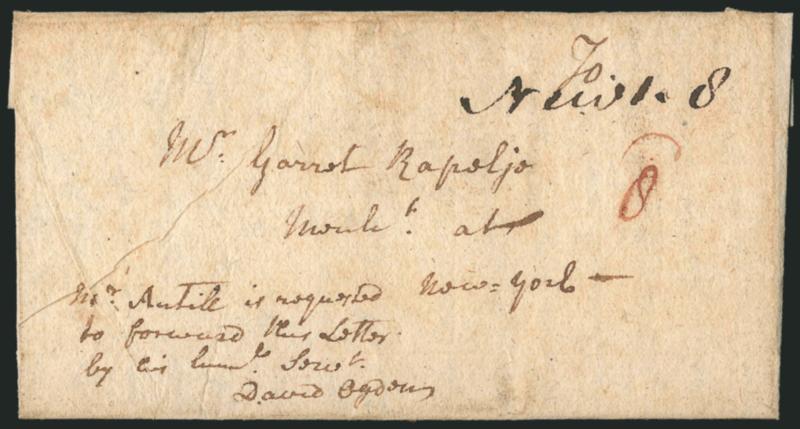 To
New1. 8
Mr. Garret Rapelje
8
Mercht. at
New=York
Mr. Antill is requested
to forward this Letter
by his humle. Servt.
David Ogden